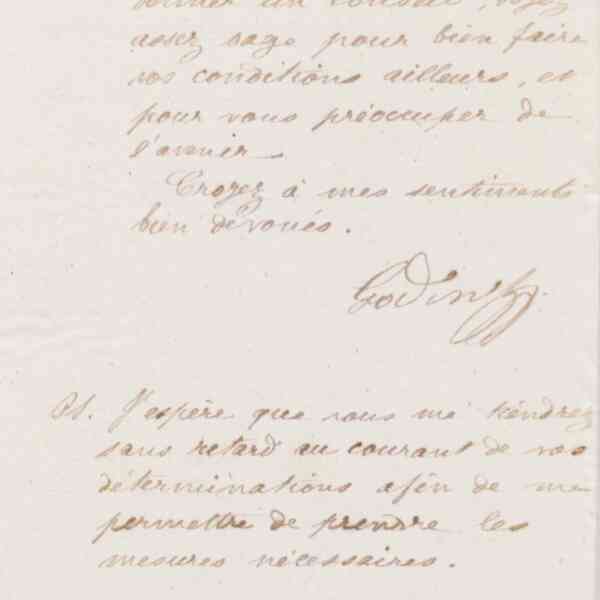 donner un conseil, soyez
assez sage pour bien faire
vos conditions ailleurs, et
pour vous préoccuper de
l'avenir
Croyez à mes sentiments
bien dévoués.
Godin
PS. J'espère que vous me tiendrez
sans retard au courant de vos
déterminations afin de me
permettre de prendre les
mesures nécessaires.